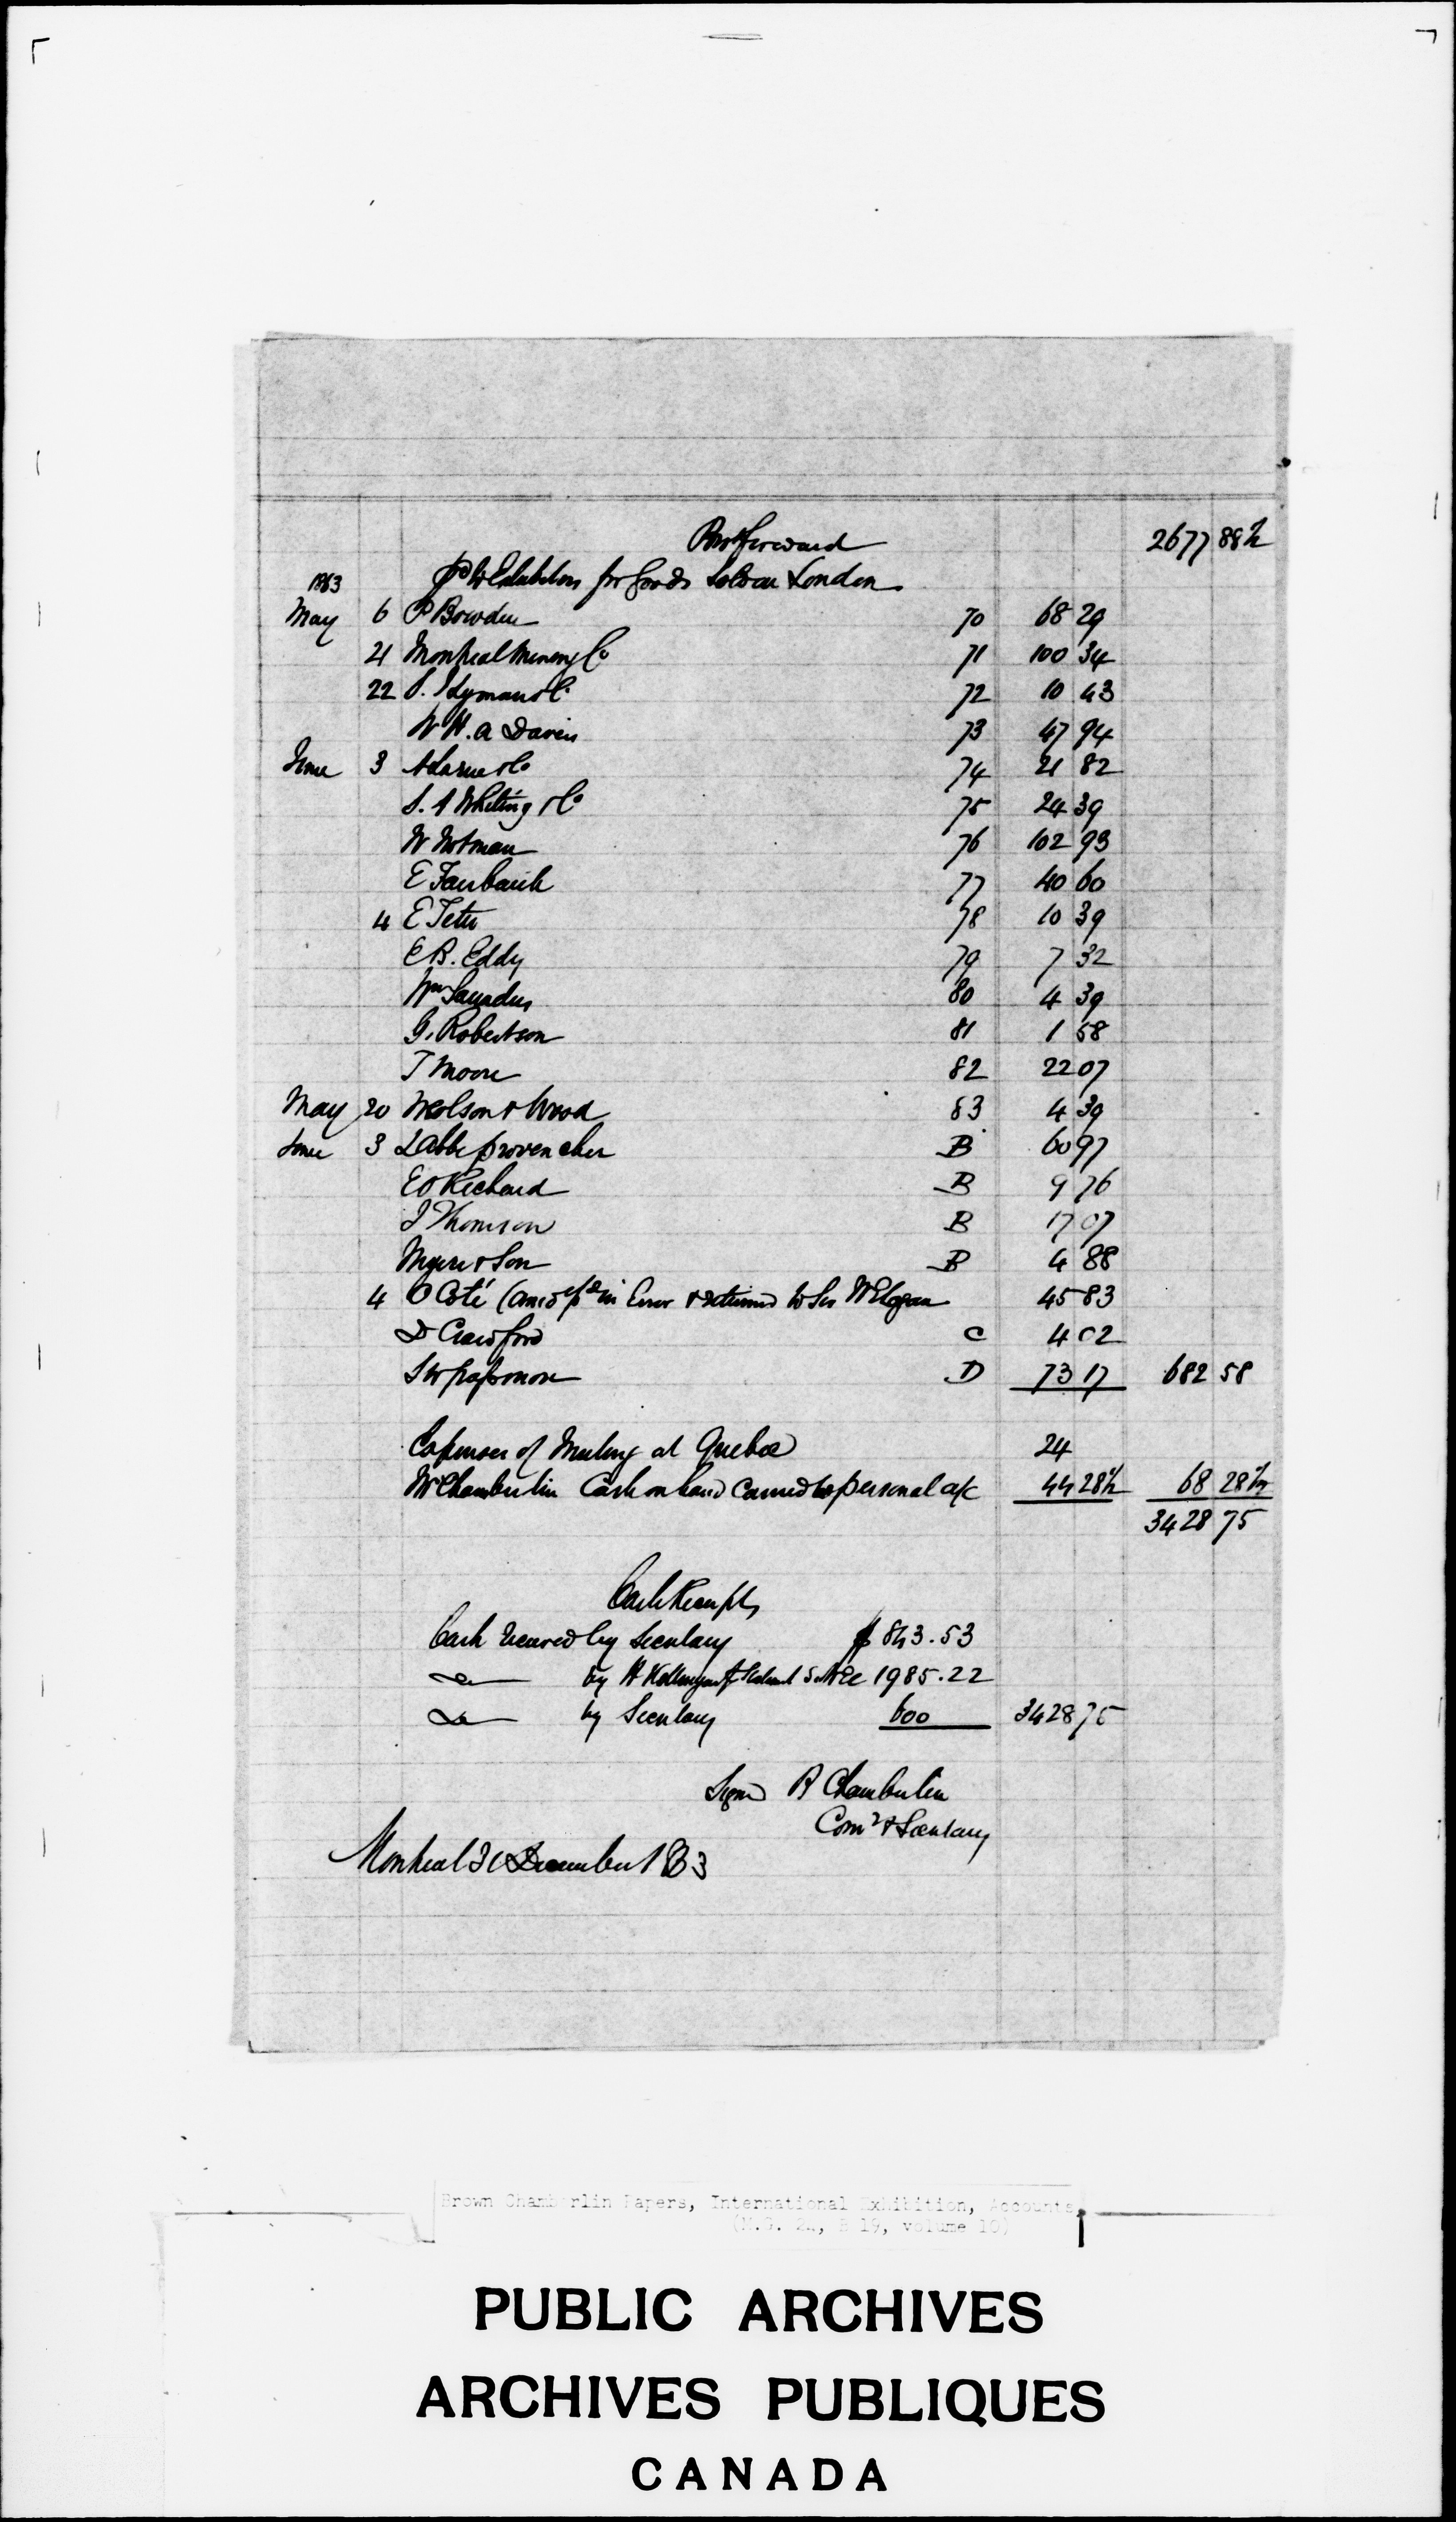 Bro't forward 2677 88½
1863 Pd to Exhibitors for Goods Sold in London
May 6 P Bowden 70 68 29
21 Montreal Mining Co 71 100 34
22 S. J Lyman & Co 72 10 43
W H. A Davies 73 47 94
June 3 A Larue & Co 74 21 82
S. A Whiting & Co 75 24 39
W Notman 76 102 93
E Fairbank 77 40 60
4 E Tetu 78 10 39
E B. Eddy 79 7 32
Wm Saunders 80 4 39
G. Robertson 81 1 58
T Moore 82 22 07
May 20 Nelson & Wood 83 4 39
June 3 L Abbe provencher B 60 97
E O Richard B 9 76
J Thomson B 17 07
Myers & Son B 4 88
4 O Coté (amt pd in Error & returned to Sir W E Logan 45 83
D Crawford C 4 02
S W passmore D 73 17 682 58
Expenses of Meeting at Quebec 24
Mr Chamberlin Cash on hand carried to personal a/c 44 28½ 68 28½
3428 75
Cash Receipts
Cash received by Secretary $ 843.53
Do by 1985.22
Do by Secretary 600 3428 75
Signed B Chamberlin
Comr & Secretary
Montreal 31 December 1863
Brown Chamberlin Papers, International Exhibition, Accounts,
(M.G. 24, B 19, volume 10)
PUBLIC ARCHIVES
ARCHIVES PUBLIQUES
CANADA